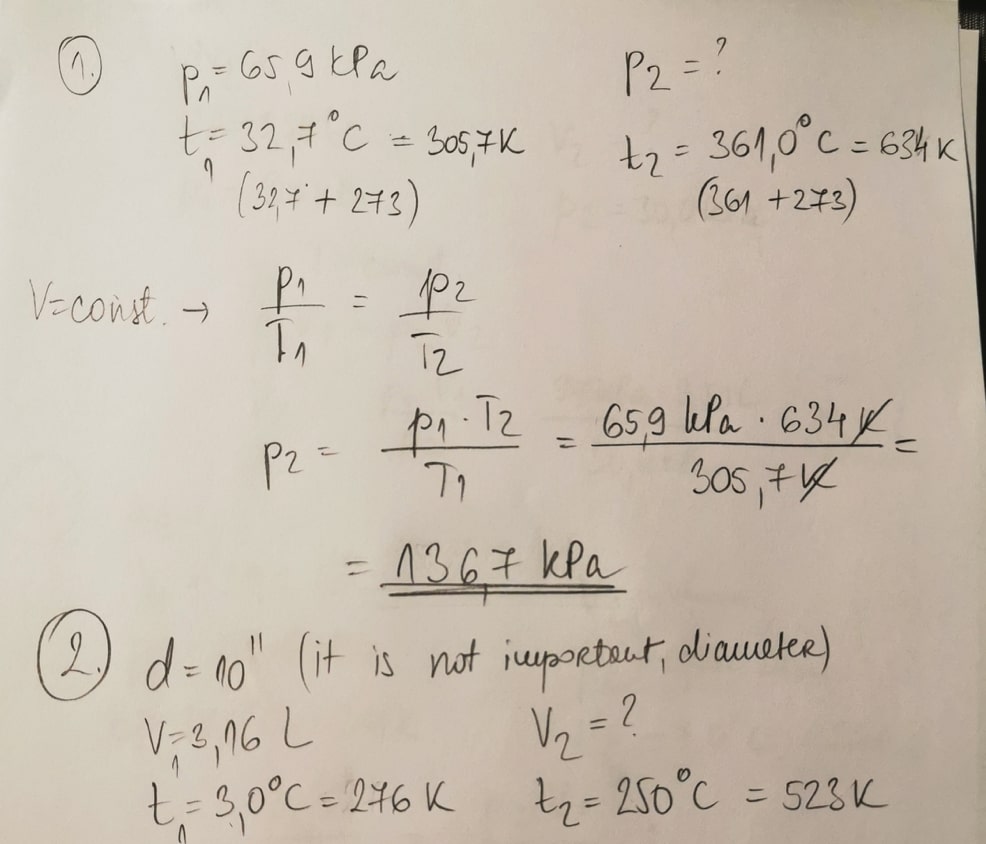 1. p₁ = 65,9 kPa p₂ = ?
t₁ = 32,7°C = 305,7 K t₂ = 361,0°C = 634 K
(32,7 + 273) (361 + 273)
V=const. → p₁/T₁ = p₂/T₂
p₂ = p₁ · T₂ / T₁ = 65,9 kPa · 634 K / 305,7 K =
= 136,7 kPa
2. d = 10" (it is not important, diameter)
V₁ = 3,16 L V₂ = ?
t₁ = 3,0°C = 276 K t₂ = 250°C = 523 K